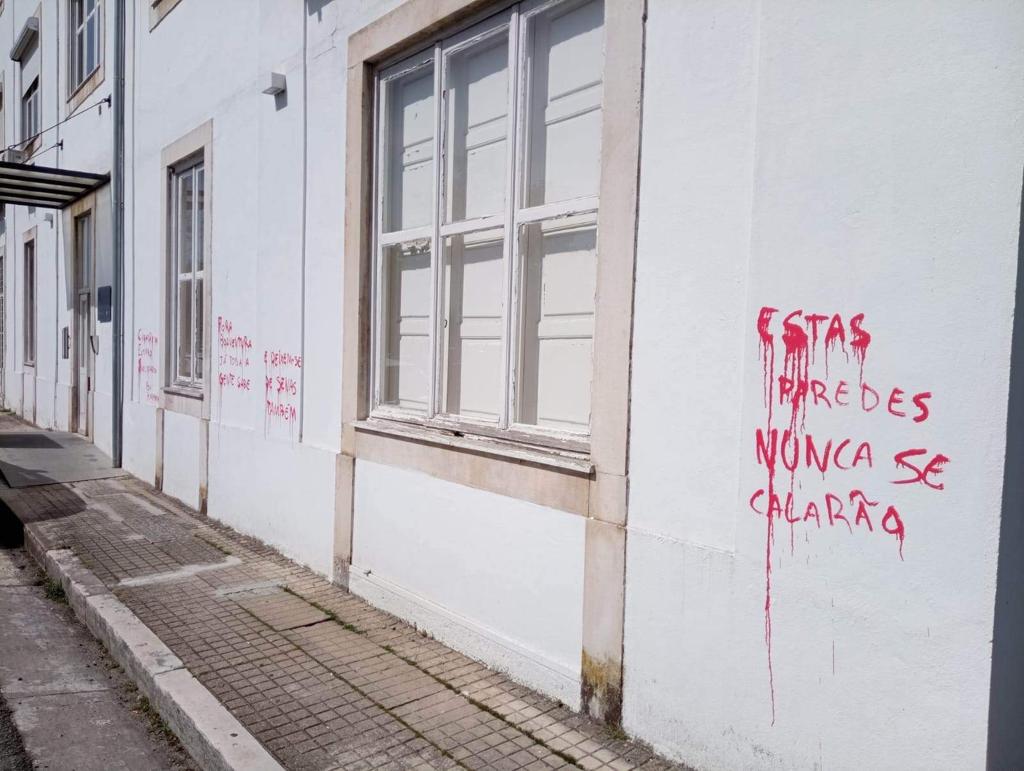 FORA
BOAVENTURA
JÁ TODA A
GENTE SABE
E DEIXEM-SE
DE SENAS
TAMBÉM
ESTAS
PAREDES
NUNCA SE
CALARÃO